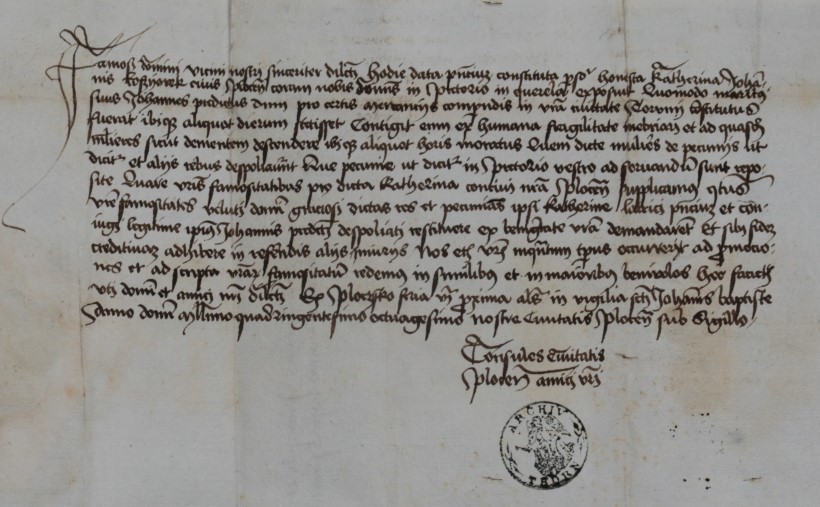 Famosi domini vicini nostri sinceriter dilcti hodie data pnciuz constituta psor honesta Katherina Johan
nis civis Plocen coram nobis domis in Pretorio in querela exposuit Quomodo maritus
suus Johannes predictus dum pro certis mercancijs comprandis in vra civitate Thoruni constitutus
fuerat ibiqz aliquot dierum stetisset Contigit enm ex humana fragilitate inebriari et ad quasdam
mlieres sicut dementem descendere ibiqz aliquot horis moratus Quem dicte mulies de pecunijs ut
dicitr et alijs rebus despoliaverunt Que pecunie ut dicitr in Pretorio vestro ad servandum sunt repo
site Quare vris famositatibus pro dicta Katherina contiui nra Plocen supplicamus qtus
vre famositates veluti domi graciosi dictas res et pecunias ipsi Katherine latrici pnciuz et con
iugi legitime ipius Johannis predcti despoliati restituere ex benignitate vra demandaret Et sibi fidez
creditivaz adhibere in referendis alijs iniurijs Nos etc vri inquntum tpus occurrerit ad promocio
nes et ad scripta vraz famositatum redemus in similibus et in maioribus benivolos hoc facietis
uti domi et amici nri dilcti Ex Ploczsko feria vi proxima als in vigilia scti Johannis baptiste
Sanno domi Millimo quadringentesimo octuagesimo nostre Civitatis Plocen sub Sigillo
Consules Civitatis
Plocen amici vri
ARCHIV
THORN